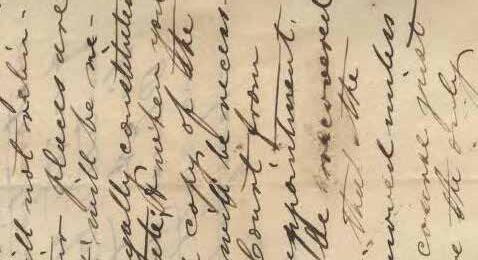 ill not relin-
places are
will be ne-
gally constituted
& when you
copy of the
will be necess-
Court from
ppointment.
the recovered
That the
moved unless
course just
the only